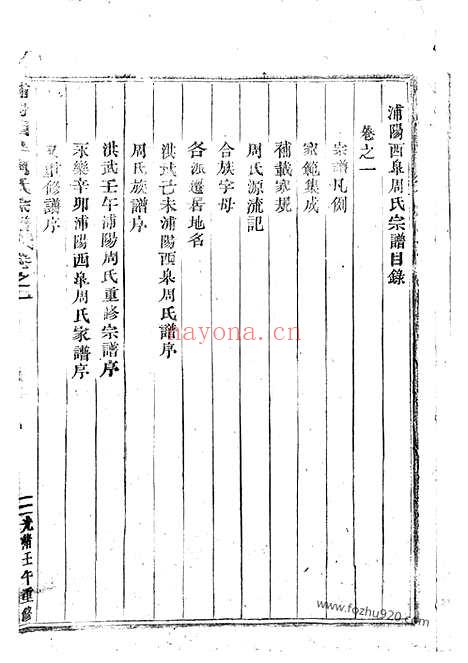 浦陽西皐周氏宗譜目錄
卷之一
宗譜凡例
家範集成
補載家規
周氏源流記
合族字母
各派遷居地名
洪武己未浦陽西皐周氏譜序
周氏族譜序
洪武壬午浦陽周氏重修宗譜序
永樂辛卯浦陽西皐周氏家譜序
重修譜序
周氏宗譜
卷之一
光緒壬午重修
nayona.cn
www.fozhu920.com